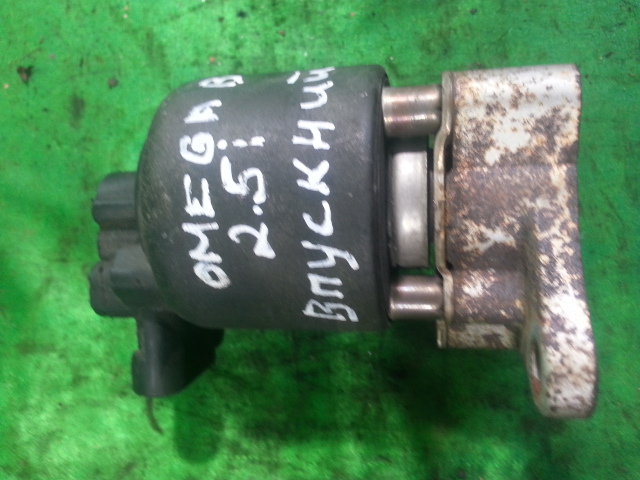 OMEGA B
2.5i
ВПУСКНИЙ